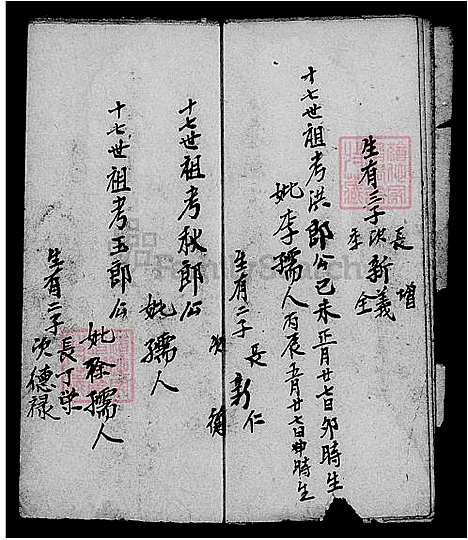 生有三子 長 增
次 新義
季 全
十七世祖考洪郎公己未正月廿七日卯時生
妣李孺人丙辰五月廿七日申時生
生有二子 長 新仁
次 德
十七世祖考秋郎公
妣 孺人
十七世祖考玉郎公
妣 孺人
生有二子 長丁
次德禄